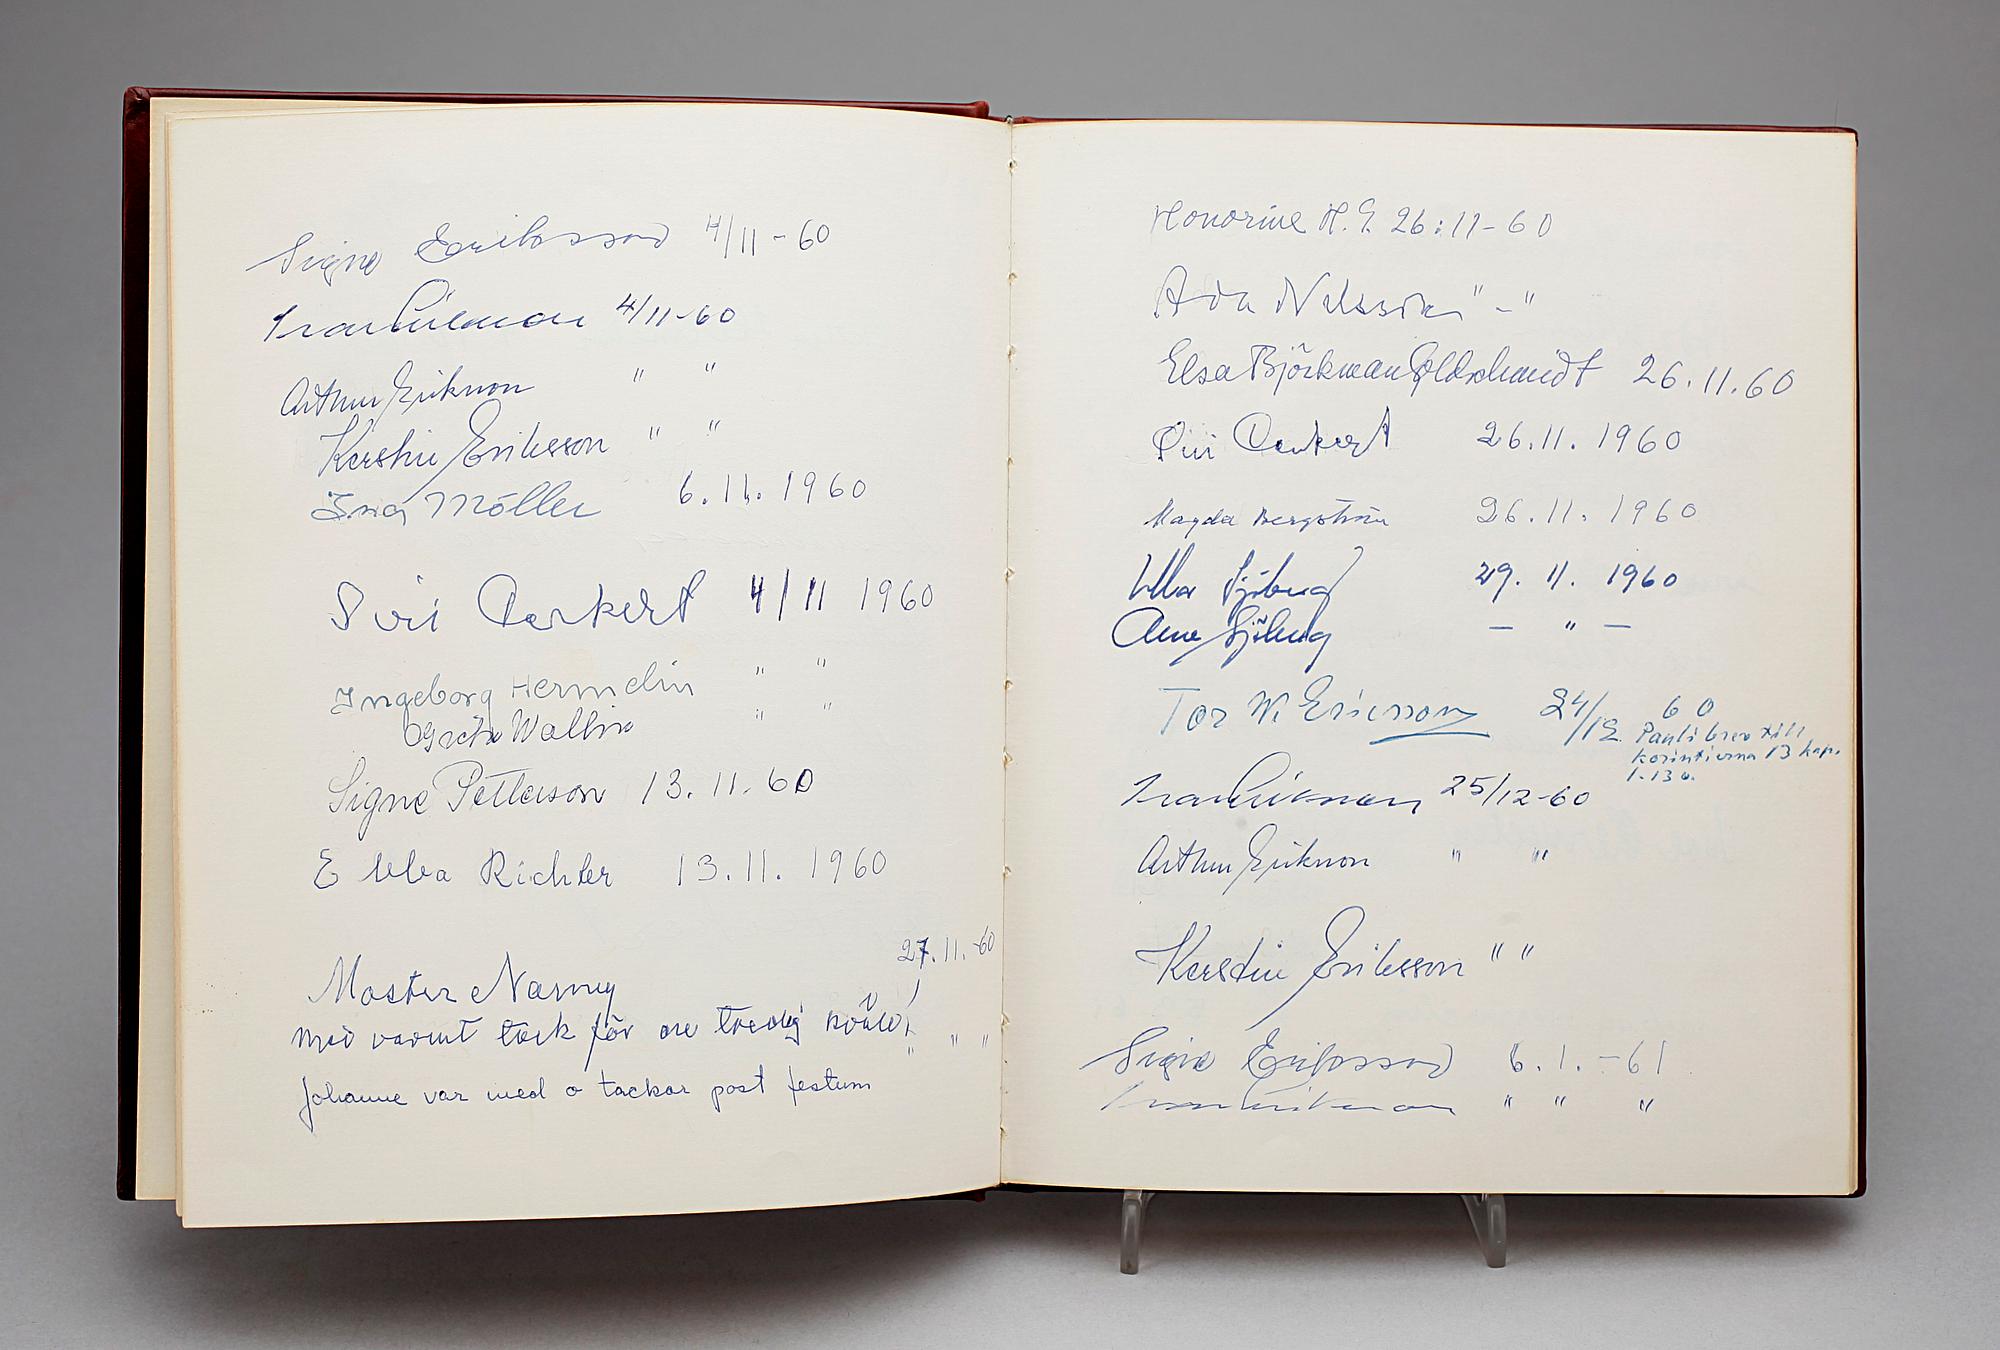 Signe Eriksson 4/11-60
Ivar Eriksson 4/11-60
Arthur Eriksson " "
Kerstin Eriksson " "
Möller 6.11.1960
Siri Derkert 4/11 1960
Ingeborg Hermelin " "
Greta Wallin " "
Signe Petterson 13.11.60
Ebba Richter 13.11.1960
27.11.-60
Moster Nanny
med varmt tack för en trevlig kväll!
" " "
Johanne var med o tackar post festum
Honorine H. G. 26:11-60
Ada Nilsson " - "
Elsa Björkman Goldschmidt 26.11.60
Siri Derkert 26.11.1960
Magda Bergström 26.11.1960
Ulla Sjöberg 29.11.1960
Arne Sjöberg — " —
Tor W. Ericsson 24/12 60
Pauli brev till
korintierna 13 kap.
1-13 v.
Ivar Eriksson 25/12-60
Arthur Eriksson " "
Kerstin Eriksson " "
Signe Eriksson 6.1.-61
Ivar Eriksson " " "